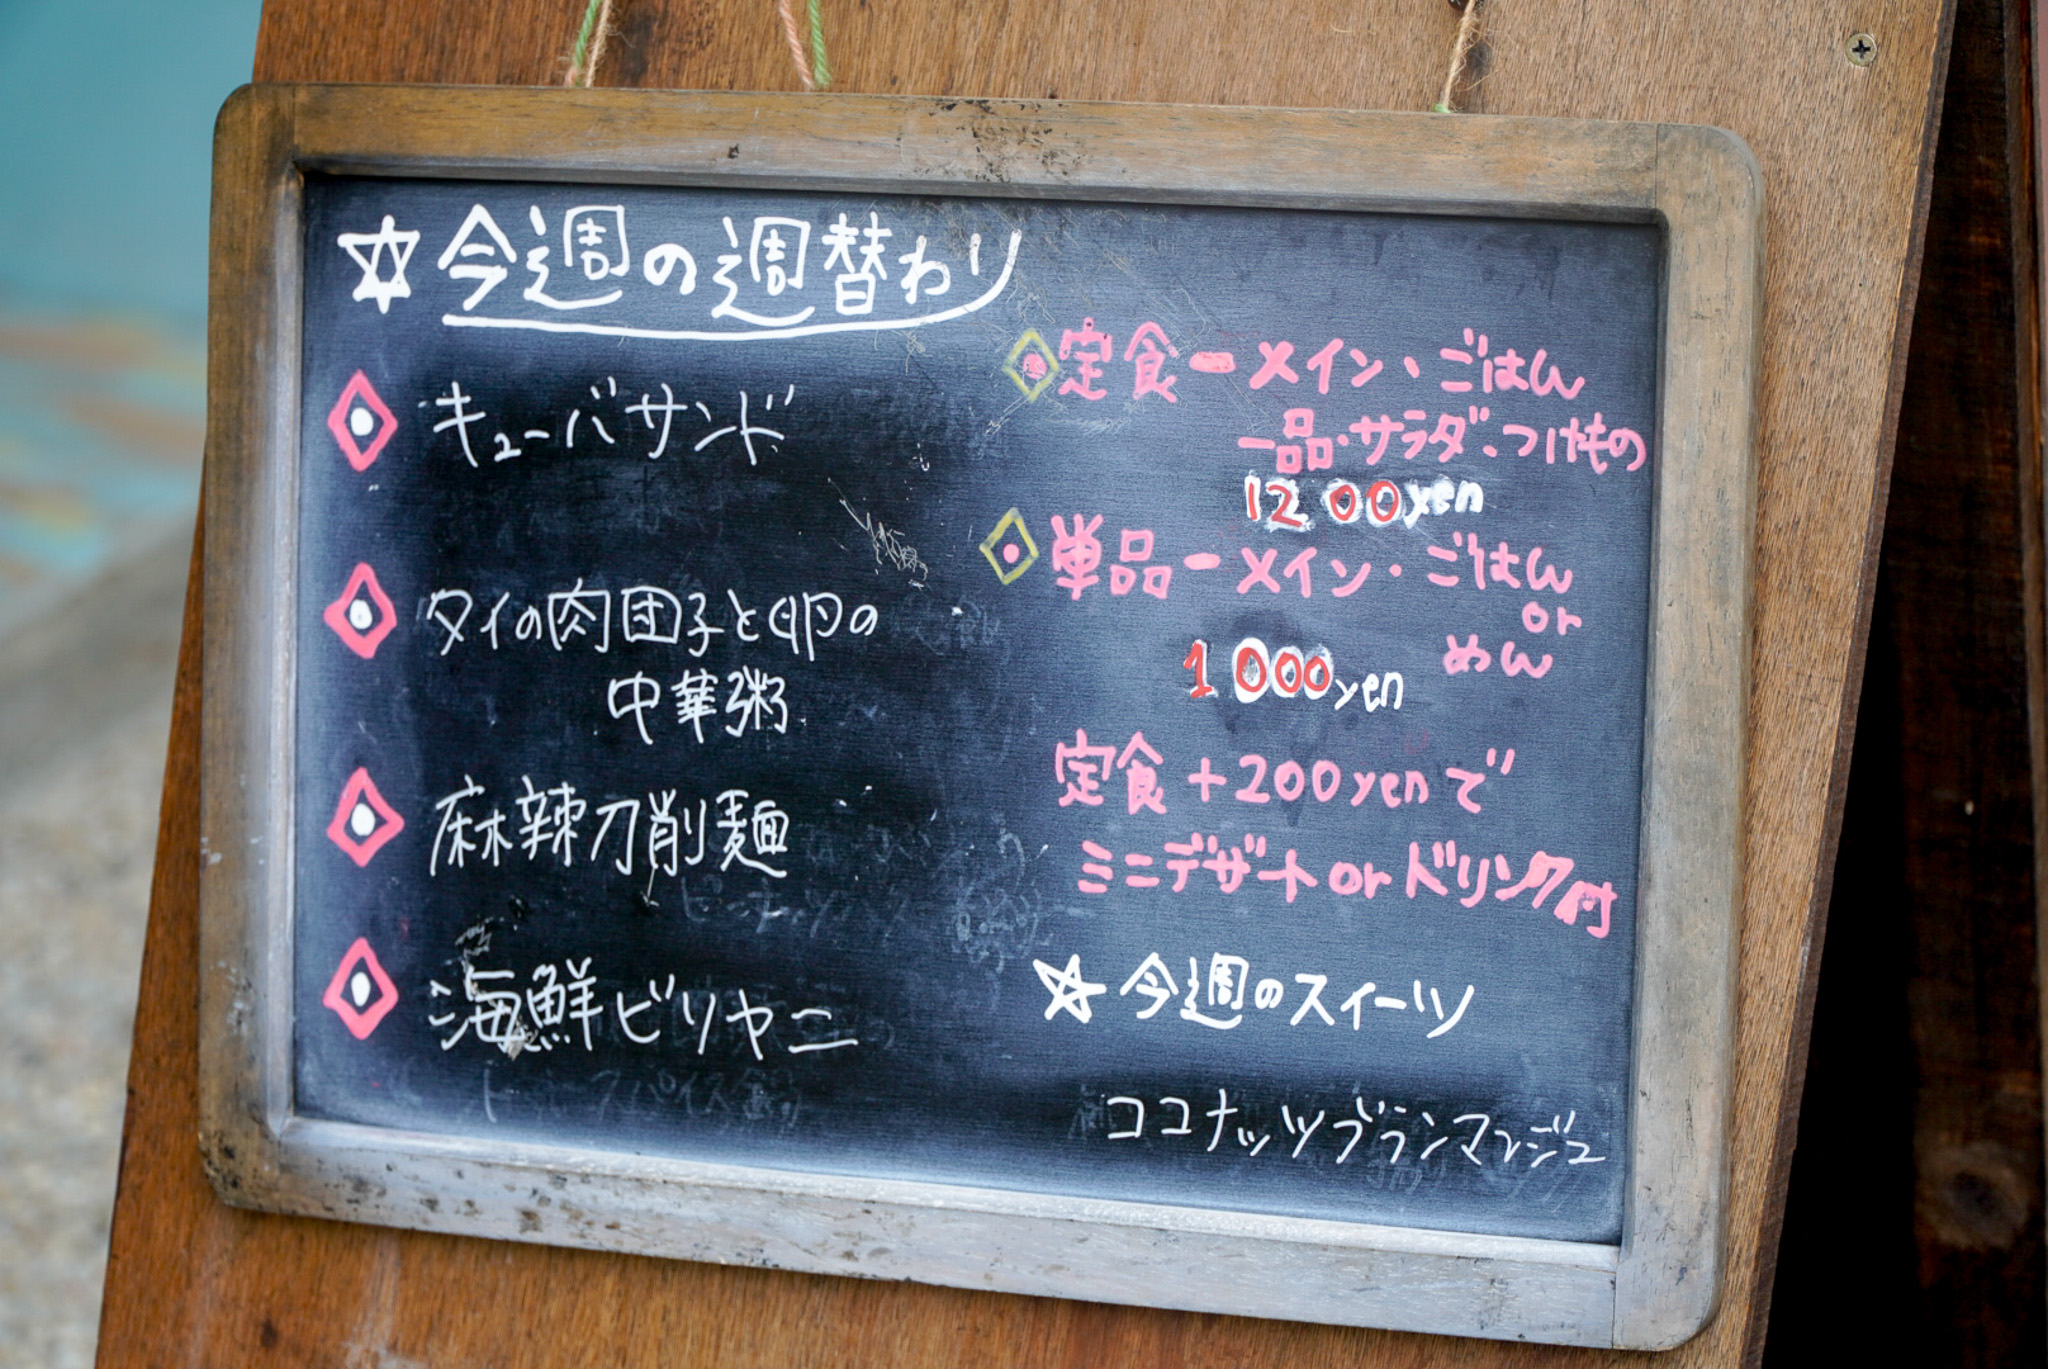 ☆今週の週替わり
キューバサンド
タイの肉団子と卵の
中華粥
麻辣刀削麺
海鮮ビリヤニ
定食ーメイン、ごはん
一品・サラダ、つけもの
1200yen
単品ーメイン・ごはん
or
めん
1000yen
定食+200yenで
ミニデザートorドリンク付
☆今週のスイーツ
ココナッツブランマンジュ